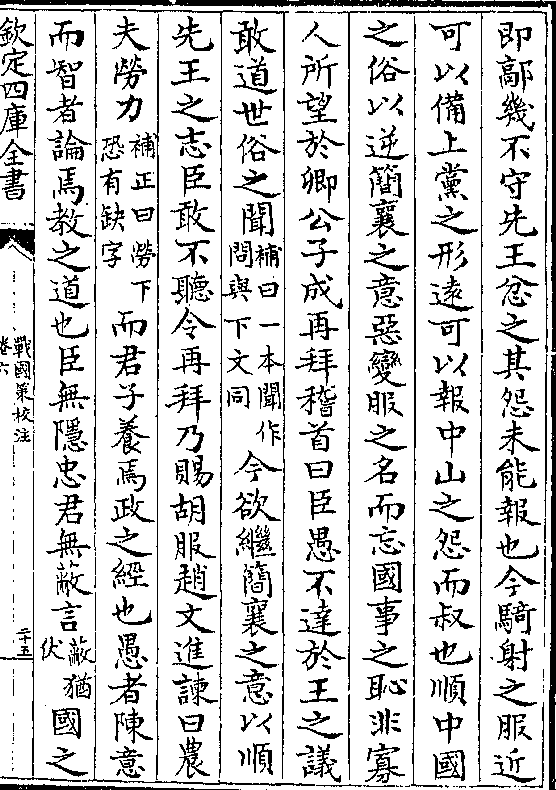 即鄗幾不守先王忿之其怨未能報也今騎射之服近
可以備上黨之形遠可以報中山之怨而叔也順中國
之俗以逆簡襄之意惡變服之名而忘國事之恥非寡
人所望於卿公子成再拜稽首曰臣愚不達於王之議
敢道世俗之聞補曰一本聞作問與下文同今欲繼簡襄之意以順
先王之志臣敢不聽令再拜乃賜胡服趙文進諫曰農
夫勞力補正曰勞下恐有缺字而君子養焉政之經也愚者陳意
而智者論焉教之道也臣無隱忠君無蔽言蔽猶伏國之
欽定四庫全書
戰國策校注
卷六
二十五